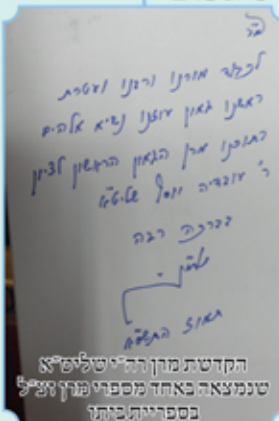 לכבוד מורנו ורבנו ועטרת
ראשנו גאון עוזנו נשיא אלהים
בתוכנו מרן הגאון הראשון לציון
ר' עובדיה יוסף שליט"א
בברכה רבה
תמוז
הקדשת מרן רה"י שליט"א
שנמצאה באחד מספרי מרן זצ"ל
בספריית ביתו